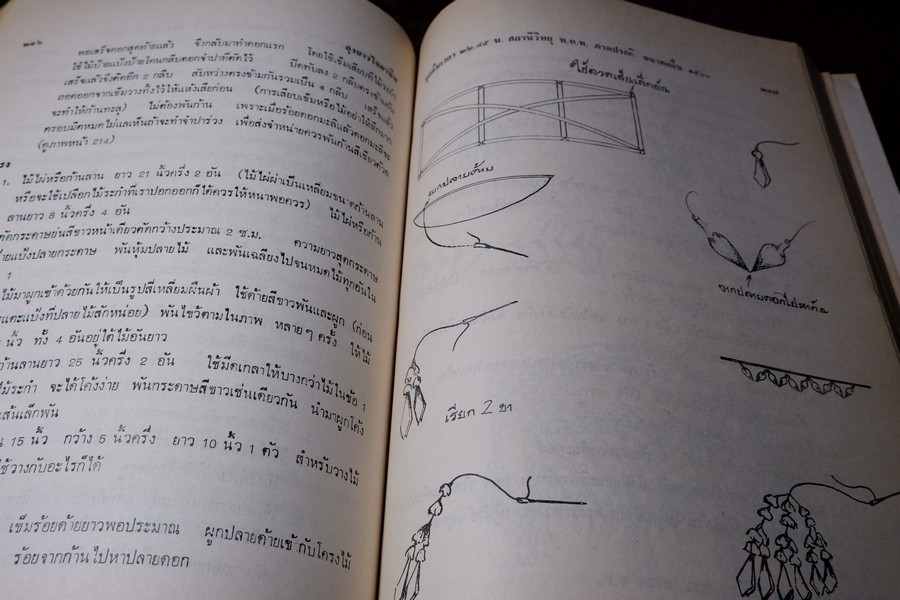 ๒๑๖
คุณหวังในอาชีพ
พอเสร็จดอกสุดท้ายแล้ว จึงกลับมาทำดอกแรก โดยใช้เข็มเสียบที่
ใช้ไม้ป้ายแป้งป้ายโคนกลีบดอกจำปาที่ตัดไว้ ปิดทับลง 2 กลีบตรงข้ามกัน
เสร็จแล้วจึงตัดอีก 2 กลีบ สับหว่างตรงข้ามกันรวมเป็น 4 กลีบ เสร็จแล้ว
ถอดออกจากเข็มวางทิ้งไว้ให้แห้งเสียก่อน (การเสียบเข็มหรือไม้อย่าให้ลึกมาก
จะทำให้ก้านทะลุ) ไม่ต้องพันก้าน เพราะเมื่อร้อยดอกมะลิแล้วดอกมะลิจะ
ครอบมิดหมดไม่แลเห็นถ้าจะทำจำปาร่วง เพื่อส่งจำหน่ายควรพันก้านสีเขียวด้วย
(ดูภาพหน้า 214)
1. ไม้ไผ่หรือก้านลาน ยาว 21 นิ้วครึ่ง 2 อัน (ไม้ไผ่ผ่าเป็นเหลี่ยมขนาดก้านลาน
หรือจะใช้เปลือกไม้ระกำที่เราปอกออกก็ได้ควรให้หนาพอควร) ไม้ไผ่หรือก้าน
ลานยาว 8 นิ้วครึ่ง 4 อัน
ตัดกระดาษย่นสีขาวหน้าเดียวตัดกว้างประมาณ 2 ซ.ม. ความยาวสุดกระดาษ
ายแป้งปลายกระดาษ พันหุ้มปลายไม้ และพันเฉลียงไปจนหมดไม้ทุกอันใน
1
ไม้มาผูกเข้าด้วยกันให้เป็นรูปสี่เหลี่ยมผืนผ้า ใช้ด้ายสีขาวพันและผูก (ก่อน
แตะแป้งที่ปลายไม้สักหน่อย) พันไขว้ตามในภาพ หลายๆ ครั้ง ให้ไม้
นิ้ว ทั้ง 4 อันอยู่ใต้ไม้อันยาว
ก้านลานยาว 25 นิ้วครึ่ง 2 อัน ใช้มีดเกลาให้บางกว่าไม้ในข้อ 1
ไม้ระกำ จะได้โค้งง่าย พันกระดาษสีขาวเช่นเดียวกัน นำมาผูกโค้ง
เส้นเล็กพัน
15 นิ้ว กว้าง 5 นิ้วครึ่ง ยาว 10 นิ้ว 1 ตัว สำหรับวางไม้
ใช้วางกับอะไรก็ได้
เข็มร้อยด้ายยาวพอประมาณ ผูกปลายด้ายเข้ากับโครงไม้
ร้อยจากก้านไปหาปลายดอก
เวลา ๒๒.๔๕ น. สถานีวิทยุ ท.ท.ท. ภาคปรกติ ขนาดคลื่น
๒๑๗
เรียก 2 ขา